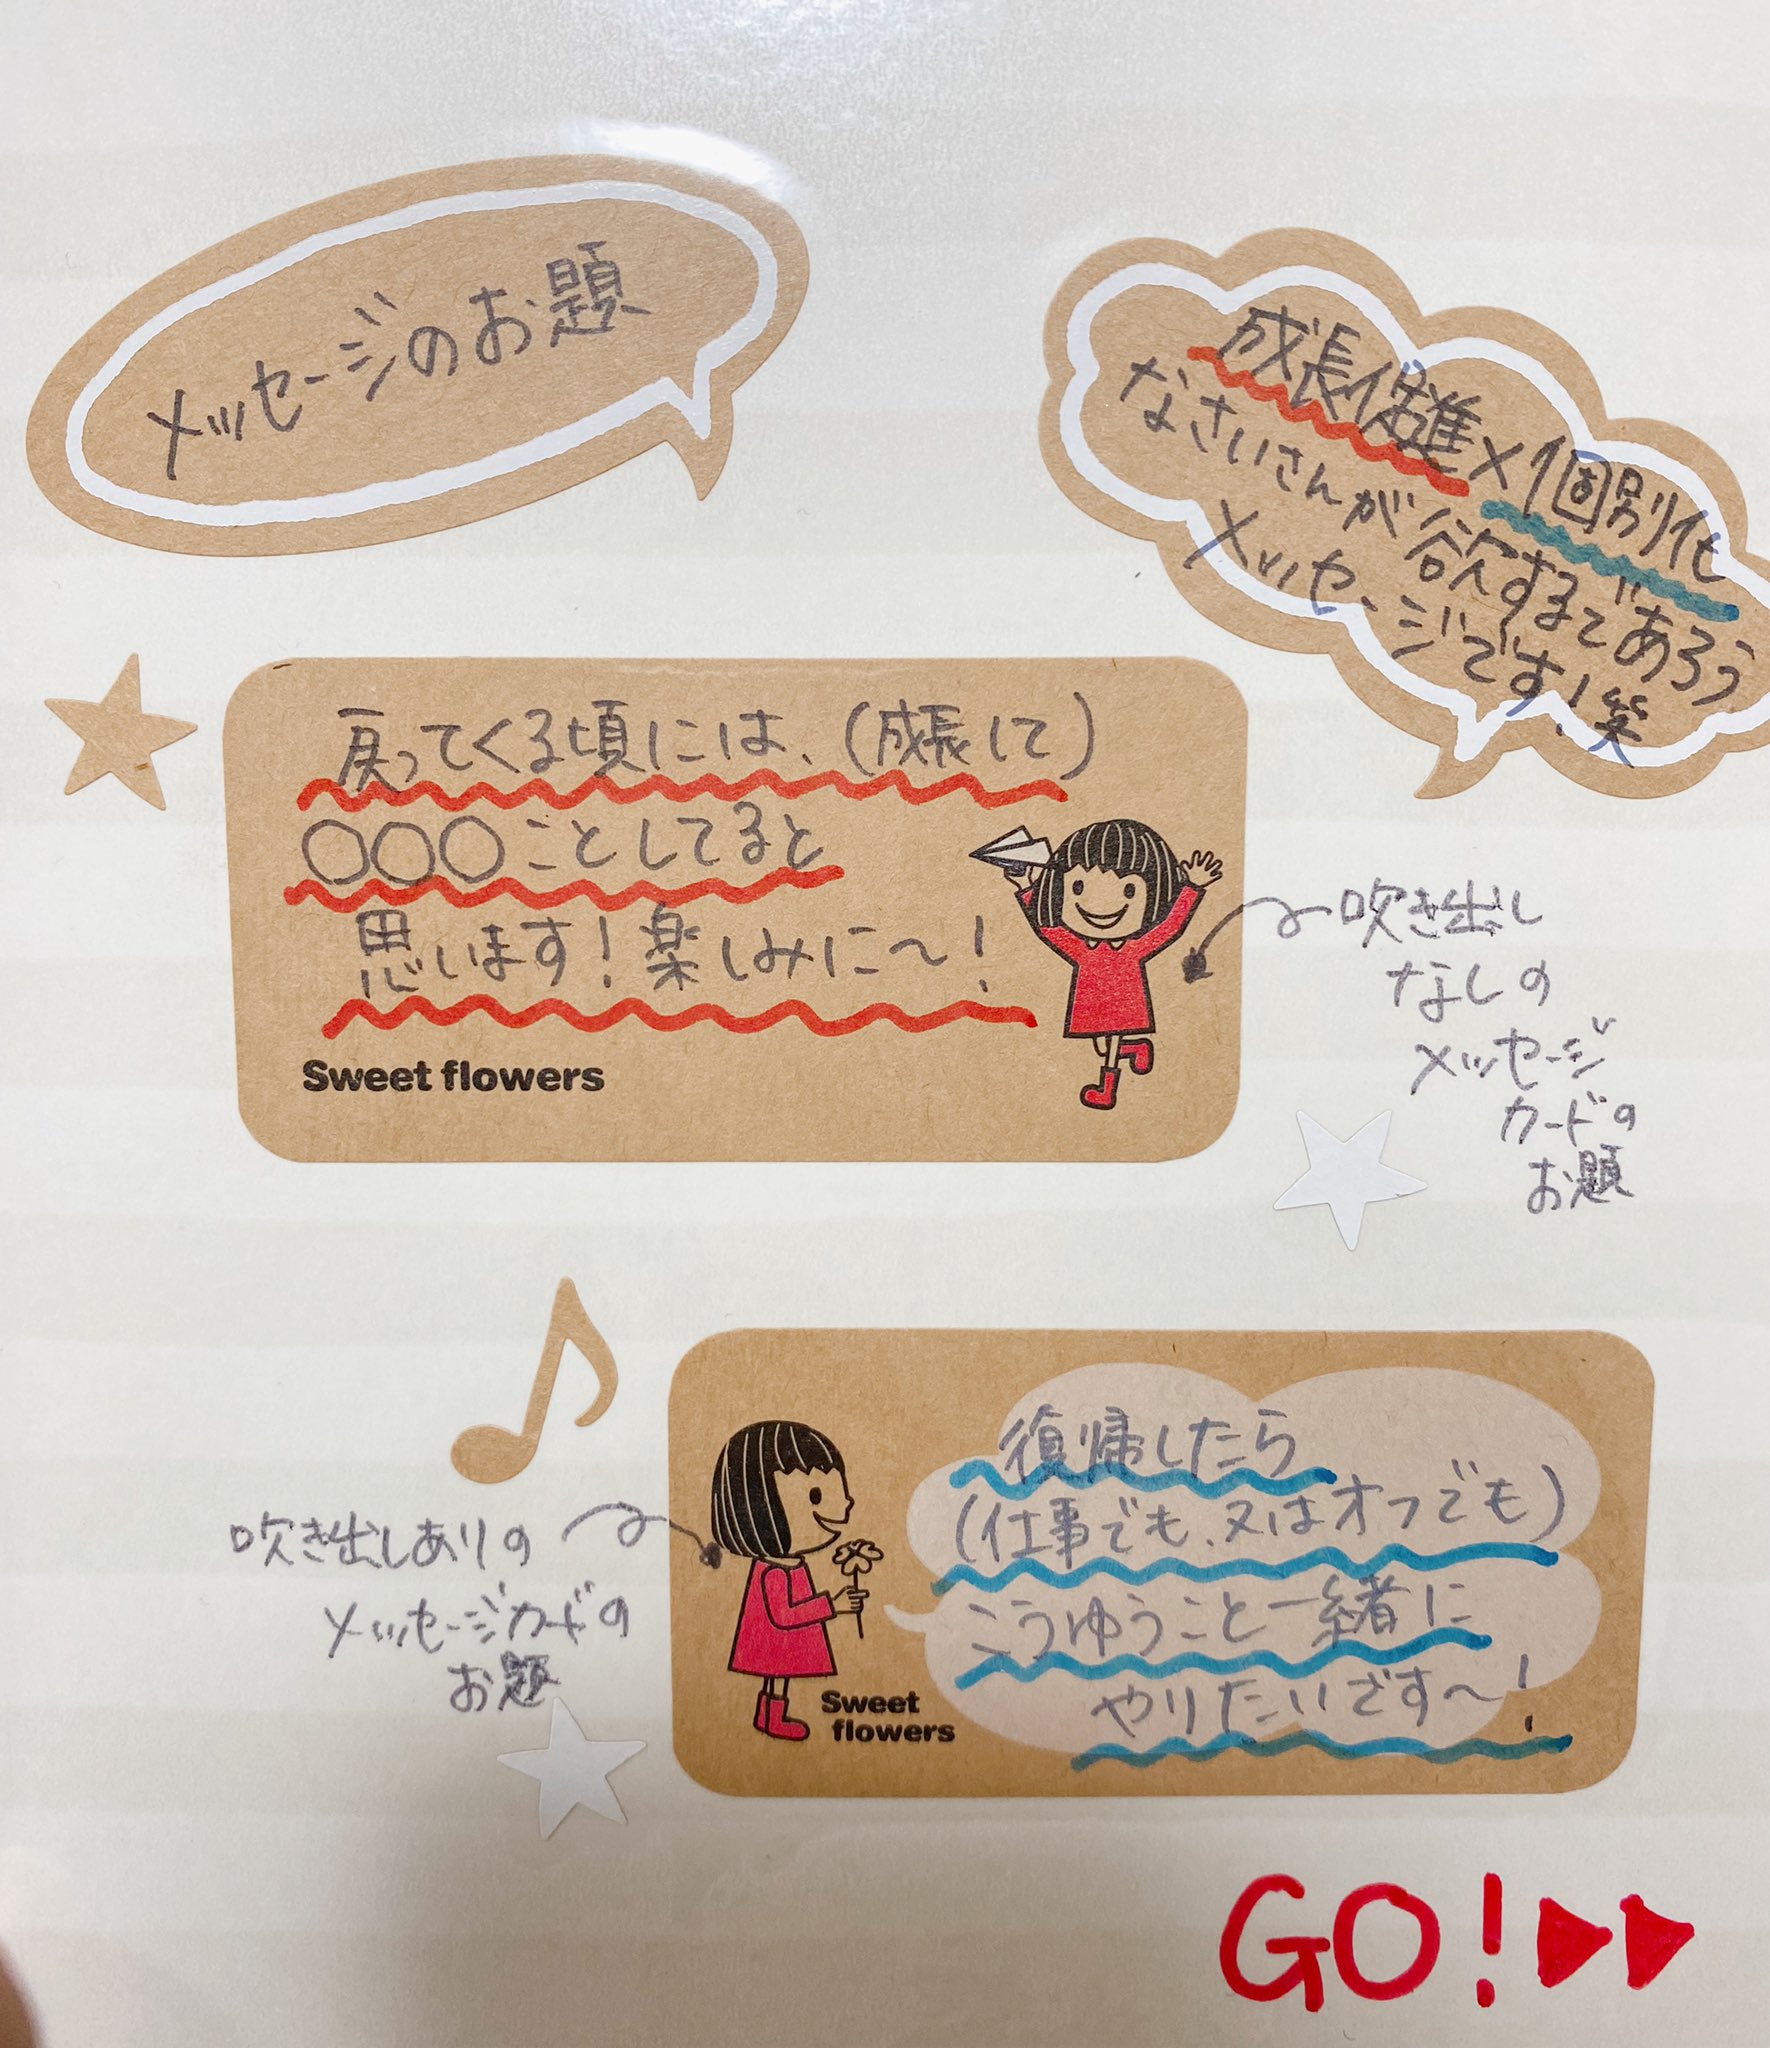 メッセージのお題
成長促進×個別化
なさいさんが欲するであろう
メッセージです！笑
戻ってくる頃には、(成長して)
○○○ことしてると
思います！楽しみに〜！
Sweet flowers
吹き出し
なしの
メッセージ
カードの
お題
吹き出しありの
メッセージカードの
お題
復帰したら
(仕事でも、又はオフでも)
こうゆうこと一緒に
やりたいです〜！
Sweet
flowers
GO！▶▶